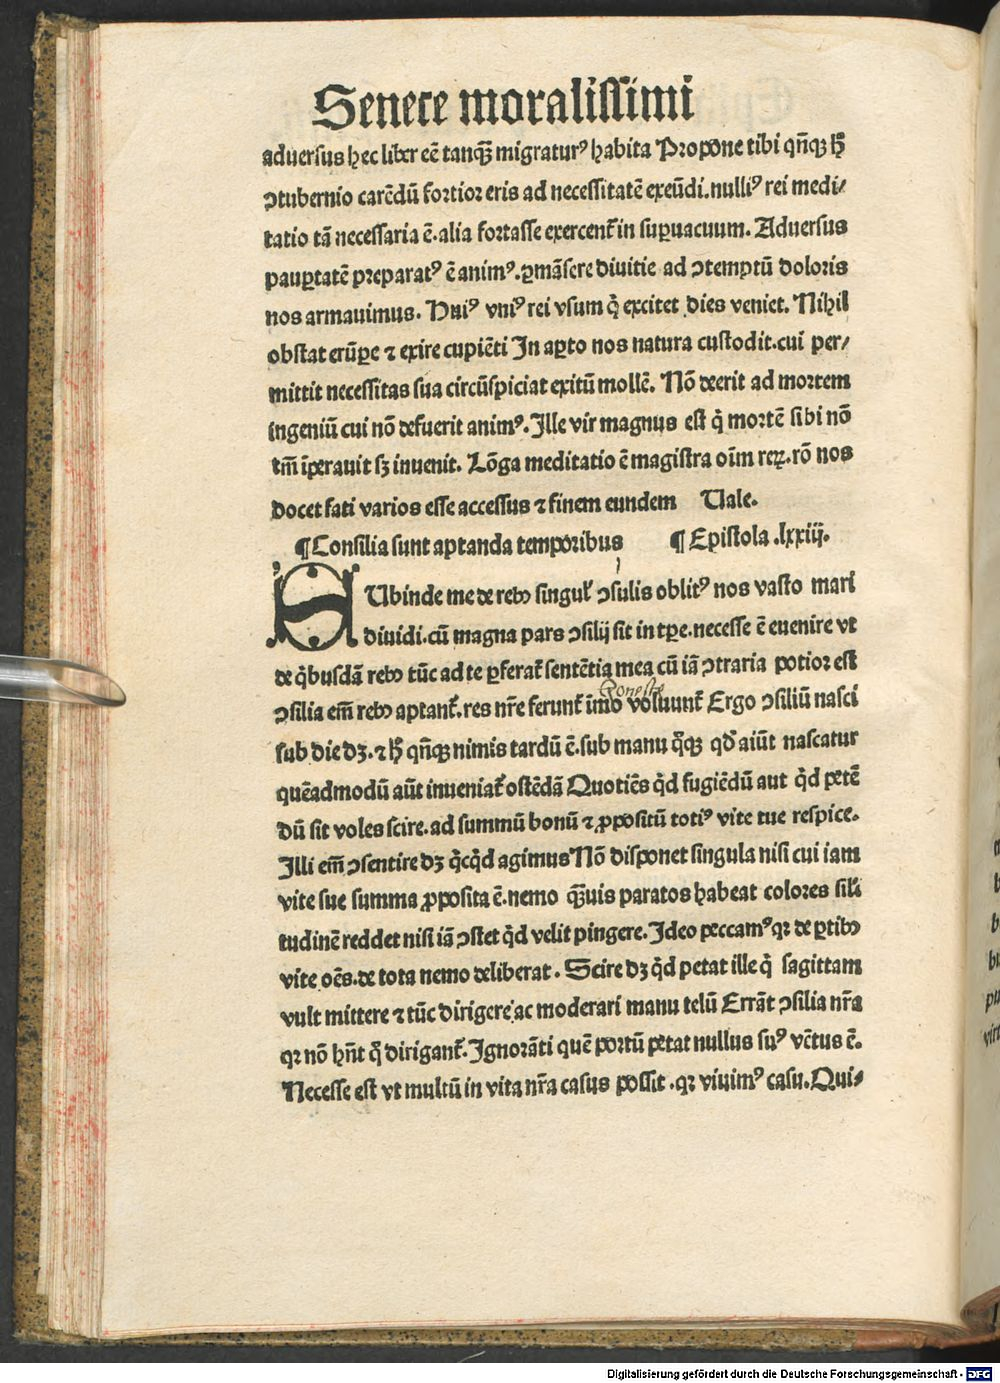 Senece moralissimi
aduersus hec liber eē tanqꝫ migraturꝰ habita Propone tibi qn̄qꝫ hͦ
ↄtubernio carēdū fortior eris ad necessitatē exeūdi. nulliꝰ rei medi/
tatio tā necessaria ē. alia fortasse exercent᷑ in suꝑuacuum. Aduersus
pauꝑtatē preparatꝰ ē animꝰ. ꝑmāsere diuitie ad ↄtemptū doloris
nos armauimus. Huiꝰ vniꝰ rei vsum q̄ excitet dies veniet. Nihil
obstat erūpe ⁊ exire cupiēti In aꝑto nos natura custodit. cui per/
mittit necessitas sua circūspiciat exitū mollē. Nō deerit ad mortem
ingeniū cui nō defuerit animꝰ. Ille vir magnus est q̇ mortē sibi nō
tm̄ īperauit sꝫ inuenit. Lōga meditatio ē magistra oīm reꝝ. rō nos
docet fati varios esse accessus ⁊ finem eundem Uale.
¶ Consilia sunt aptanda temporibus ¶ Epistola .lxxiij.
SUbinde me de rebꝰ singul̓ ↄsulis oblitꝰ nos vasto mari
diuidi. cū magna pars ↄsilij sit in tp̄e. necesse ē euenire vt
de q̇busdā rebꝰ tūc ad te ꝑferat᷑ sentētia mea cū iā ↄtraria potior est
honeste
ↄsilia em̄ rebꝰ aptant᷑. res nr̄e ferunt᷑ īmo voluunt᷑ Ergo ↄsiliū nasci
sub die dꝫ. ⁊ hͦ qn̄qꝫ nimis tardū ē. sub manu qꝫqꝫ qd̓ aiūt nascatur
quēadmodū aūt inueniat᷑ ostēdā Quotiēs q̇d fugiēdū aut q̇d petē
dū sit voles scire. ad summū bonū ⁊ ꝓpositū totiꝰ vite tue respice.
Illi em̄ ↄsentire dꝫ q̇cq̇d agimus Nō disponet singula nisi cui iam
vite sue summa ꝓposita ē. nemo qꝫuis paratos habeat colores sil̓i
tudinē reddet nisi iā ↄstet q̇d velit pingere. Ideo peccamꝰ qꝛ de ꝑtibꝰ
vite oēs. de tota nemo deliberat. Scire dꝫ q̇d petat ille q̇ sagittam
vult mittere ⁊ tūc dirigere ac moderari manu telū Errāt ↄsilia nr̄a
qꝛ nō hn̄t q̊ dirigant᷑. Ignorāti quē portū petat nullus suꝰ vētus ē.
Necesse est vt multū in vita nr̄a casus possit. qꝛ viuimꝰ casu. Qui/
Digitalisierung gefördert durch die Deutsche Forschungsgemeinschaft - DFG